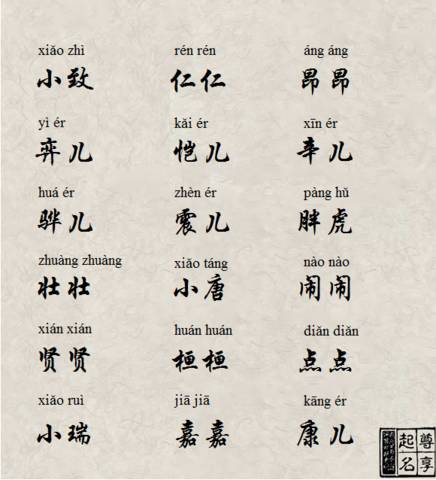 xiǎo zhì rén rén áng áng
小致 仁仁 昂昂
yì ér kǎi ér xīn ér
弈儿 恺儿 辛儿
huá ér zhèn ér pàng hǔ
骅儿 震儿 胖虎
zhuàng zhuàng xiǎo táng nào nào
壮壮 小唐 闹闹
xián xián huán huán diǎn diǎn
贤贤 桓桓 点点
xiǎo ruì jiā jiā kāng ér
小瑞 嘉嘉 康儿
尊享
起名